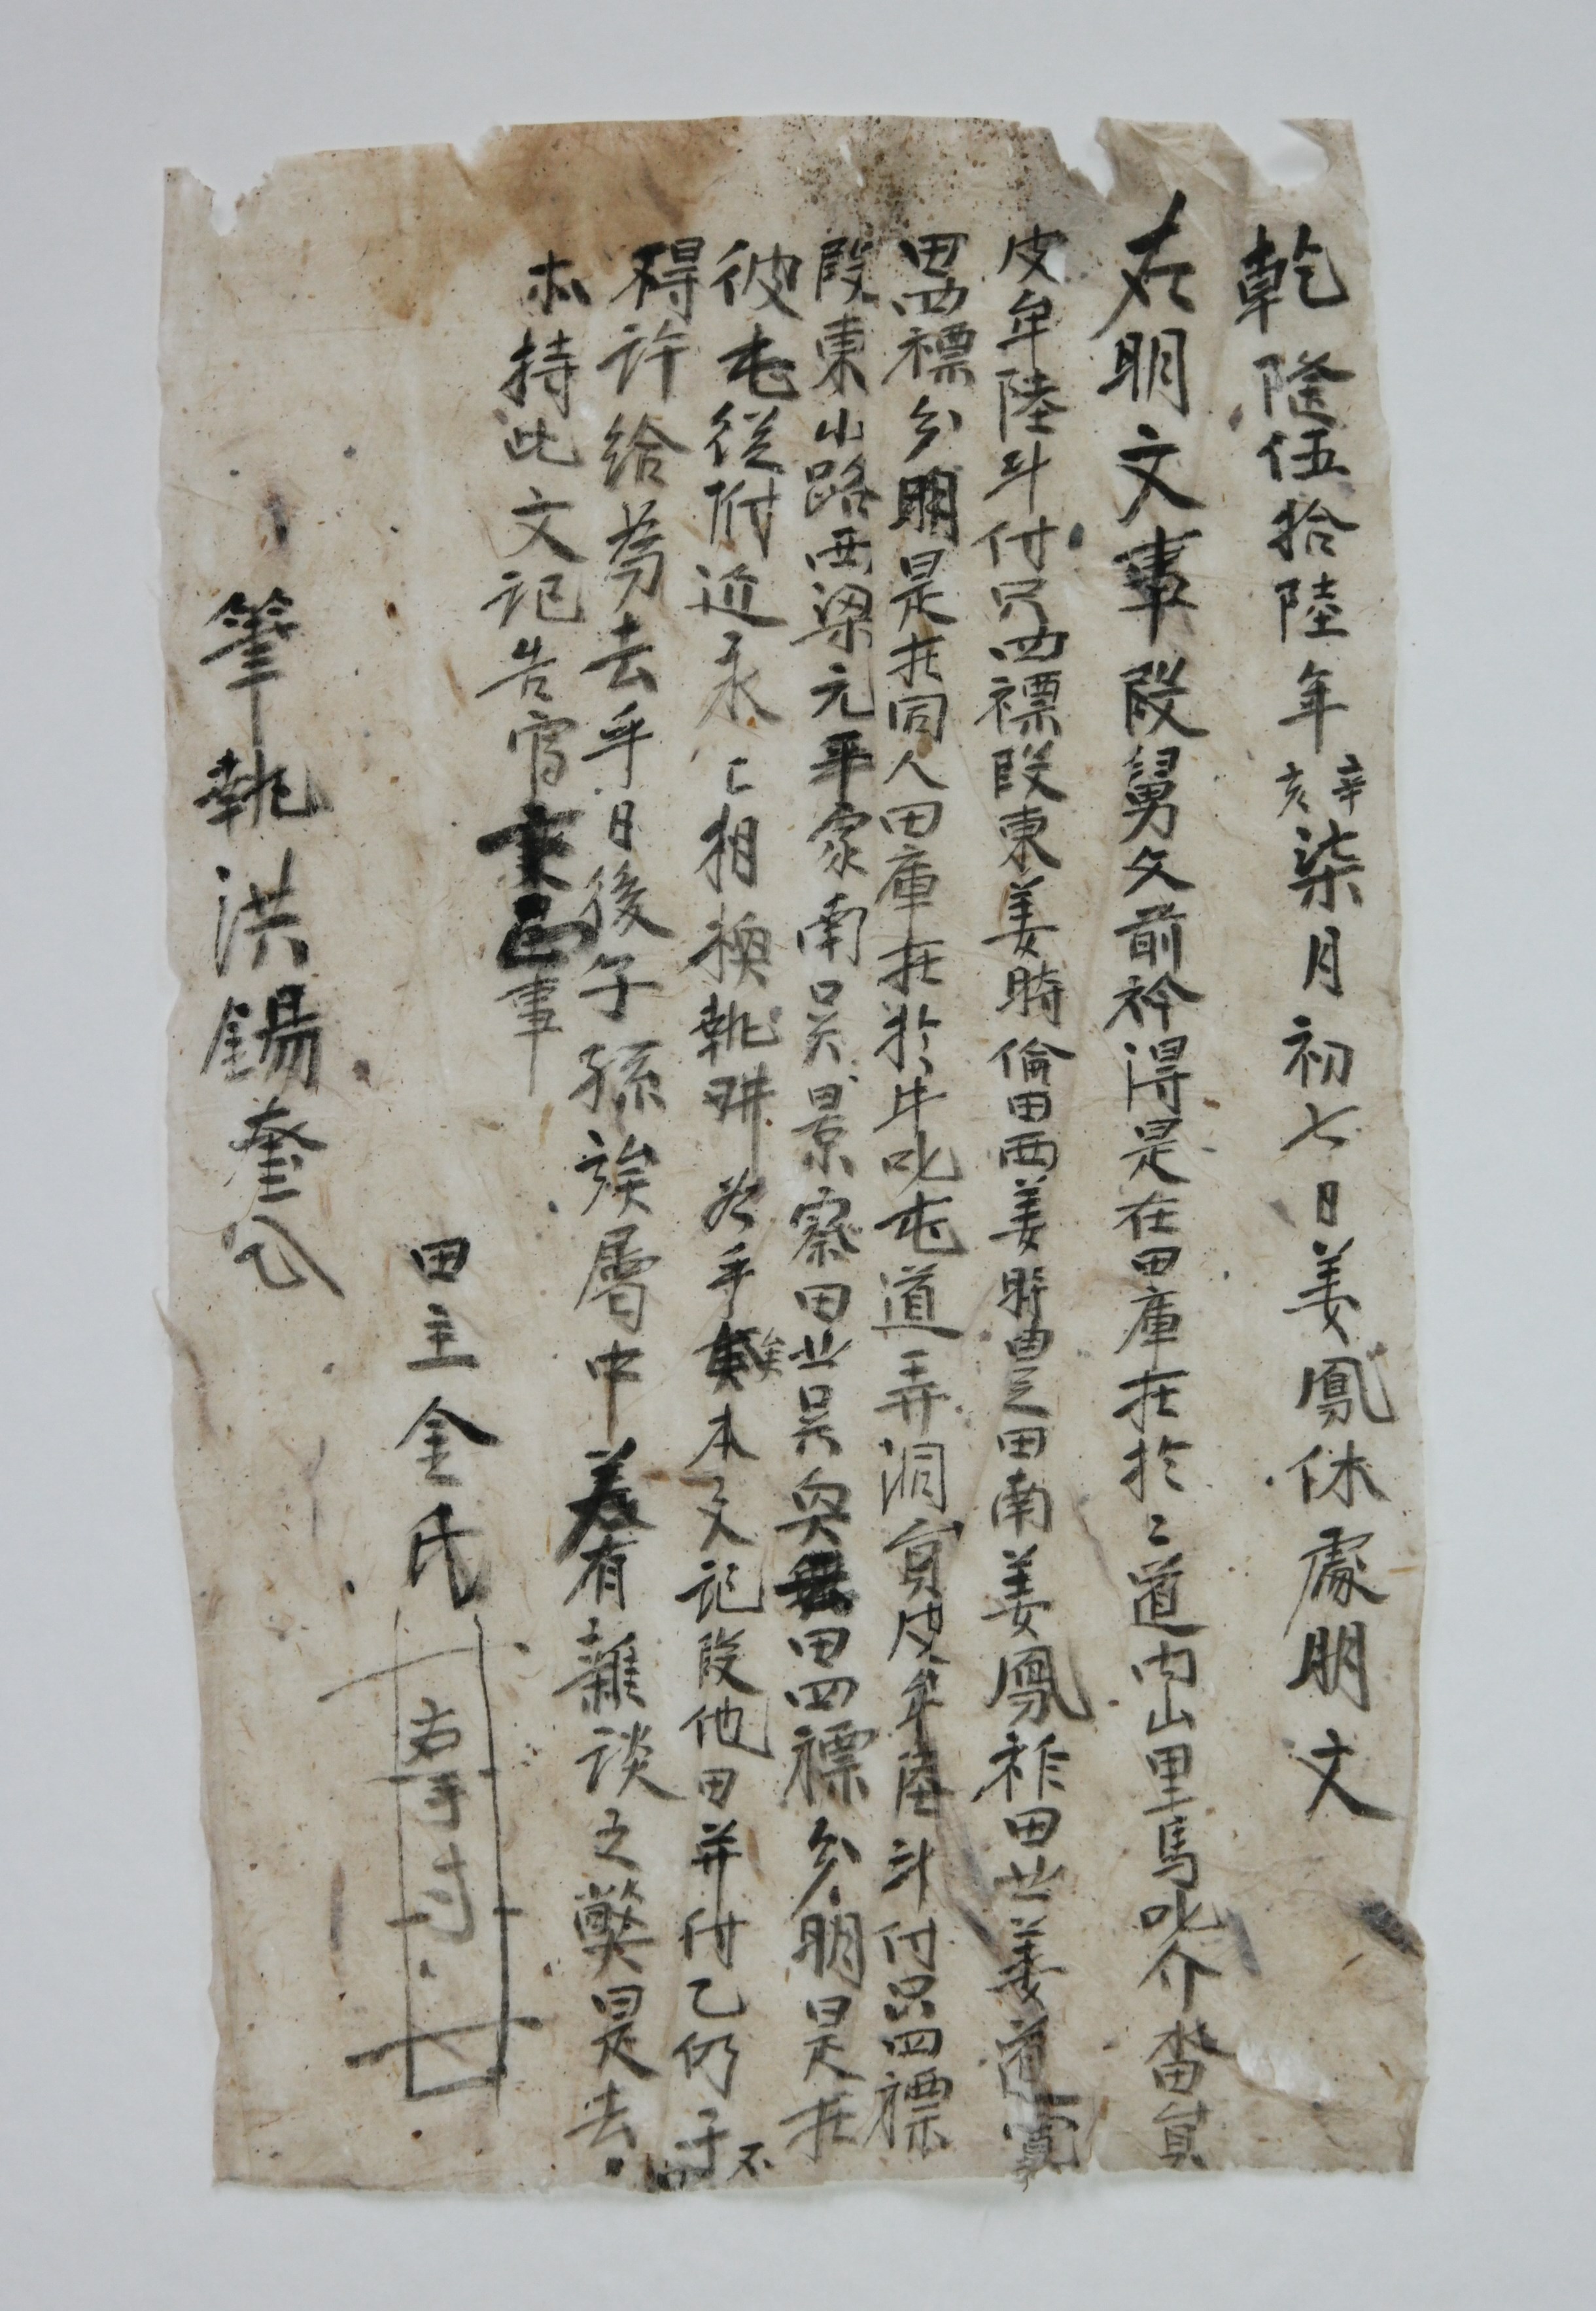 乾隆伍拾陸年辛亥柒月初七日姜鳳休處明文
右明文事段舅父前衿得是在田庫在於二道内山里馬叱介畓員
皮牟陸斗付只四標段東姜時倫田西姜時豊之田南姜鳳祚田北姜道
田四標分明是在同人田庫在於牛叱屯道弄洞員皮牟陸斗付只四標
段東小路西梁元平家南吴景察田北吴奐田四標分明是在
彼此從附近永永相換執耕為乎矣本文記段他田并付乙仍于不
得許給為去乎日後子孫族屬中若有雜談之弊是去
木持此文記告官卞正事
田主金氏
右手寸
筆執洪錫奎